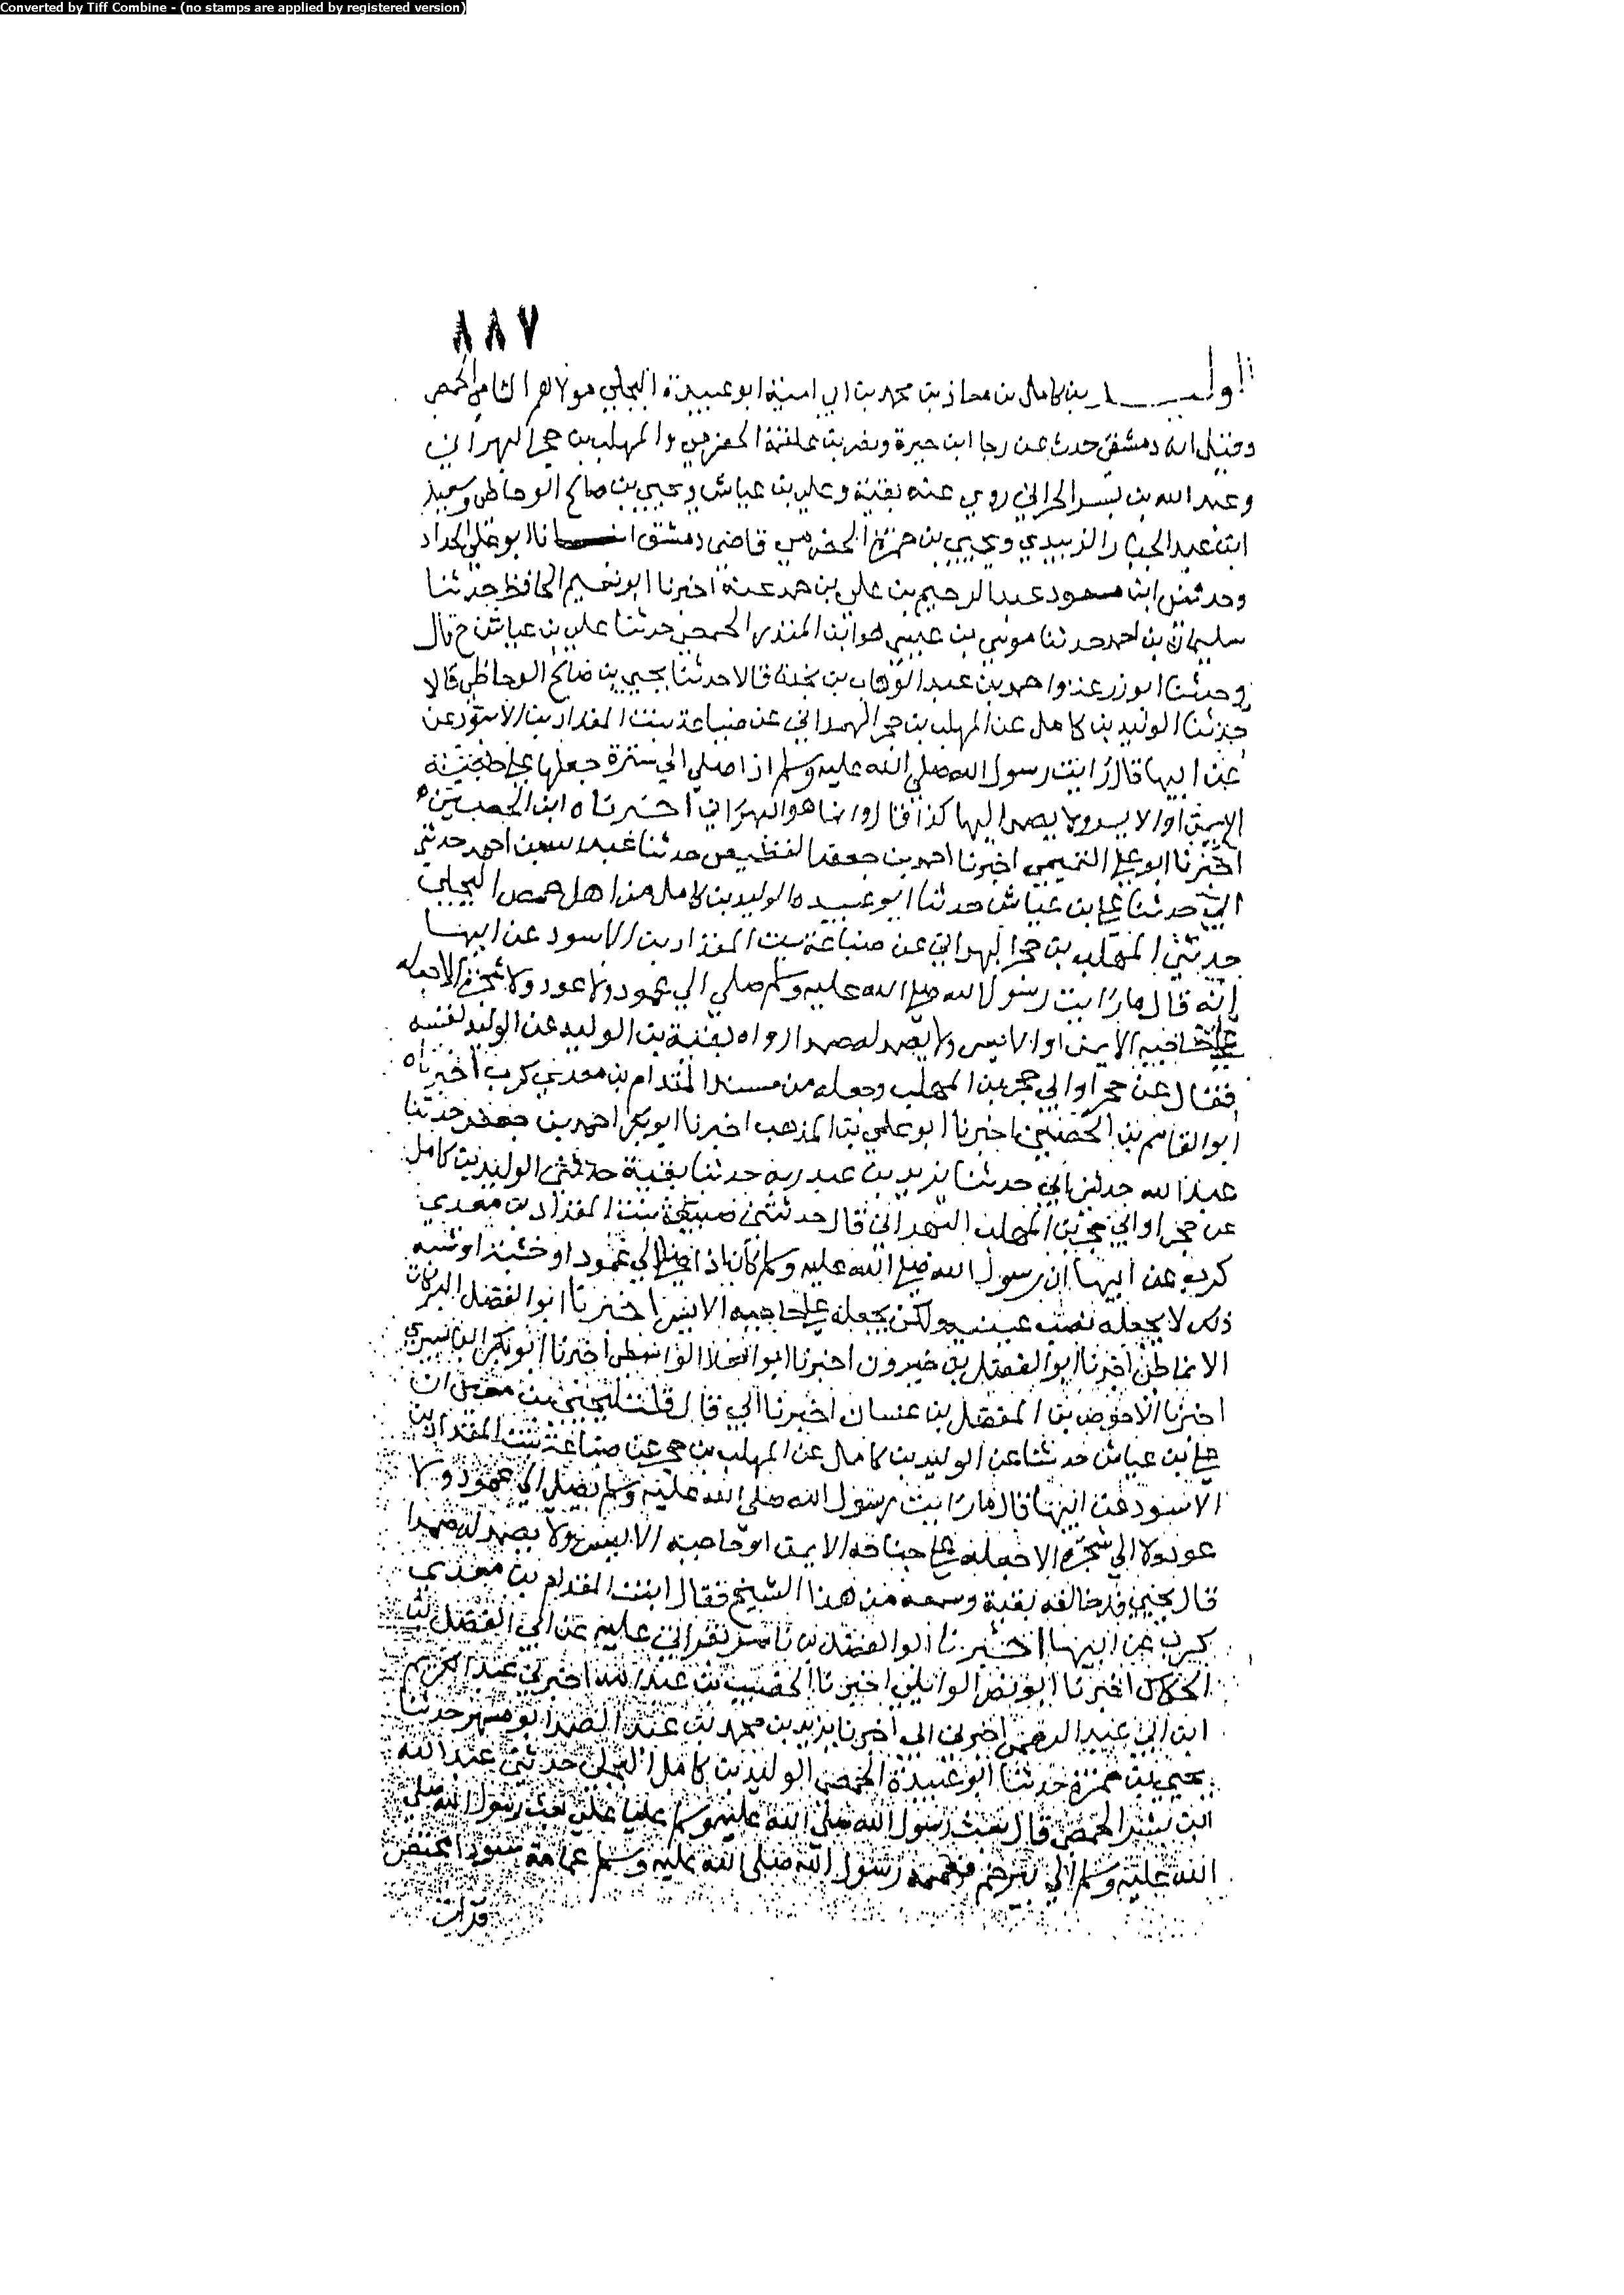 Converted by Tiff Combine - (no stamps are applied by registered version)
٨٨٧
الوليد بن كامل بن معاذ بن محمد بن ابي امية ابو عبيدة البجلي مولاهم الشامي الحمصي
وقيل انه دمشقي حدث عن رجا ابن حيوة ونصر بن علقمة الحضرمي والمهلب بن حجر البهراني
وعبد الله بن بسر الحراني روي عنه بقية وعلي بن عياش ويحيي بن صالح الوحاظي وسعيد
ابن عبد الجبار الزبيدي ويحيي بن حمزة الحضرمي قاضي دمشق انبانا ابو علي الحداد
وحدثني ابن مسعود عبد الرحيم بن علي بن حمد عنه اخبرنا ابو نعيم الحافظ حدثنا
سليمان بن احمد حدثنا موسي بن عيسي هو ابن المنذر الحمصي حدثنا علي بن عياش ح قال
وحدثنا ابو زرعة واحمد بن عبد الوهاب بن نجدة قالا حدثنا يحيي بن صالح الوحاظي قالا
حدثنا الوليد بن كامل عن المهلب بن حجر الهمداني عن ضباعة بنت المقداد بن الاسود عن
عن ابيها قال رايت رسول الله صلي الله عليه وسلم اذا صلي الي سترة جعلها علي حاجبه
الايمن او الايسر ولا يصمد اليها كذا قال وانما هو البهراني اخبرناه ابن الحصين
اخبرنا ابو علي التميمي اخبرنا احمد بن جعفر القطيعي حدثنا عبد الله بن احمد حدثني
ابي حدثنا علي بن عياش حدثنا ابو عبيده الوليد بن كامل من اهل حمص البجلي
حدثني المهلب بن حجر البهراني عن ضباعة بنت المقداد بن الاسود عن ابيها
انه قال ما رايت رسول الله صلي الله عليه وسلم صلي الي عمود ولا عود ولا شجرة الا جعله
علي حاجبه الايمن او الايسر ولا يصمد له صمدا رواه بقية بن الوليد عن الوليد نفسه
فقال عن حجر او ابي حجر بن المهلب وجعله من مسند المقدام بن معدي كرب اخبرناه
ابو القاسم بن الحصين اخبرنا ابو علي بن المذهب اخبرنا ابو بكر احمد بن جعفر حدثنا
عبد الله حدثني ابي حدثنا يزيد بن عبد ربه حدثنا بقية حدثني الوليد بن كامل
عن حجر او ابي حجر بن المهلب البهراني قال حدثتني ضبيعة بنت المقداد بن معدي
كرب عن ابيها ان رسول الله صلي الله عليه وسلم كان اذا صلي الي عمود او خشبة او شبه
ذلك لا يجعله نصب عينيه ولكن يجعله علي حاجبه الايسر اخبرنا ابو الفضل البركات
الانماطي اخبرنا ابو الفضل بن خيرون اخبرنا ابو العلا الواسطي اخبرنا ابو بكر البابسيري
اخبرنا الاحوص بن المفضل بن غسان اخبرنا ابي قال قلت ليحيي بن معين ان
علي بن عياش حدثنا عن الوليد بن كامل عن المهلب بن حجر عن ضباعة بنت المقداد بن
الاسود عن ابيها قال ما رايت رسول الله صلي الله عليه وسلم يصلي الي عمود ولا
عود ولا الي شجرة الا جعله علي حاجبه الايمن او حاجبه الايسر ولا يصمد له صمدا
قال يحيي قد خالفه بقية وسمعه من هذا الشيخ فقال ابنت المقدام بن معدي
كرب عن ابيها اخبرنا ابو الفضل بن ناصر بقراتي عليه عن ابي الفضل بن
الحكاك اخبرنا ابو نصر الوايلي اخبرنا الخصيب بن عبد الله اخبرني عبد الكريم
ابن ابي عبد الرحمن اخبرني ابي اخبرنا يزيد بن محمد بن عبد الصمد ابو مسهر حدثنا
يحيي بن حمزة حدثنا ابو عبيدة الحمصي الوليد بن كامل البجلي حدثني عبد الله
ابن بسر الحمصي قال بعث رسول الله صلي الله عليه وسلم عليا علي بعث رسول الله صلي
الله عليه وسلم الي خم فعممه رسول الله صلي الله عليه وسلم عمامة سودا مختصر
قرات